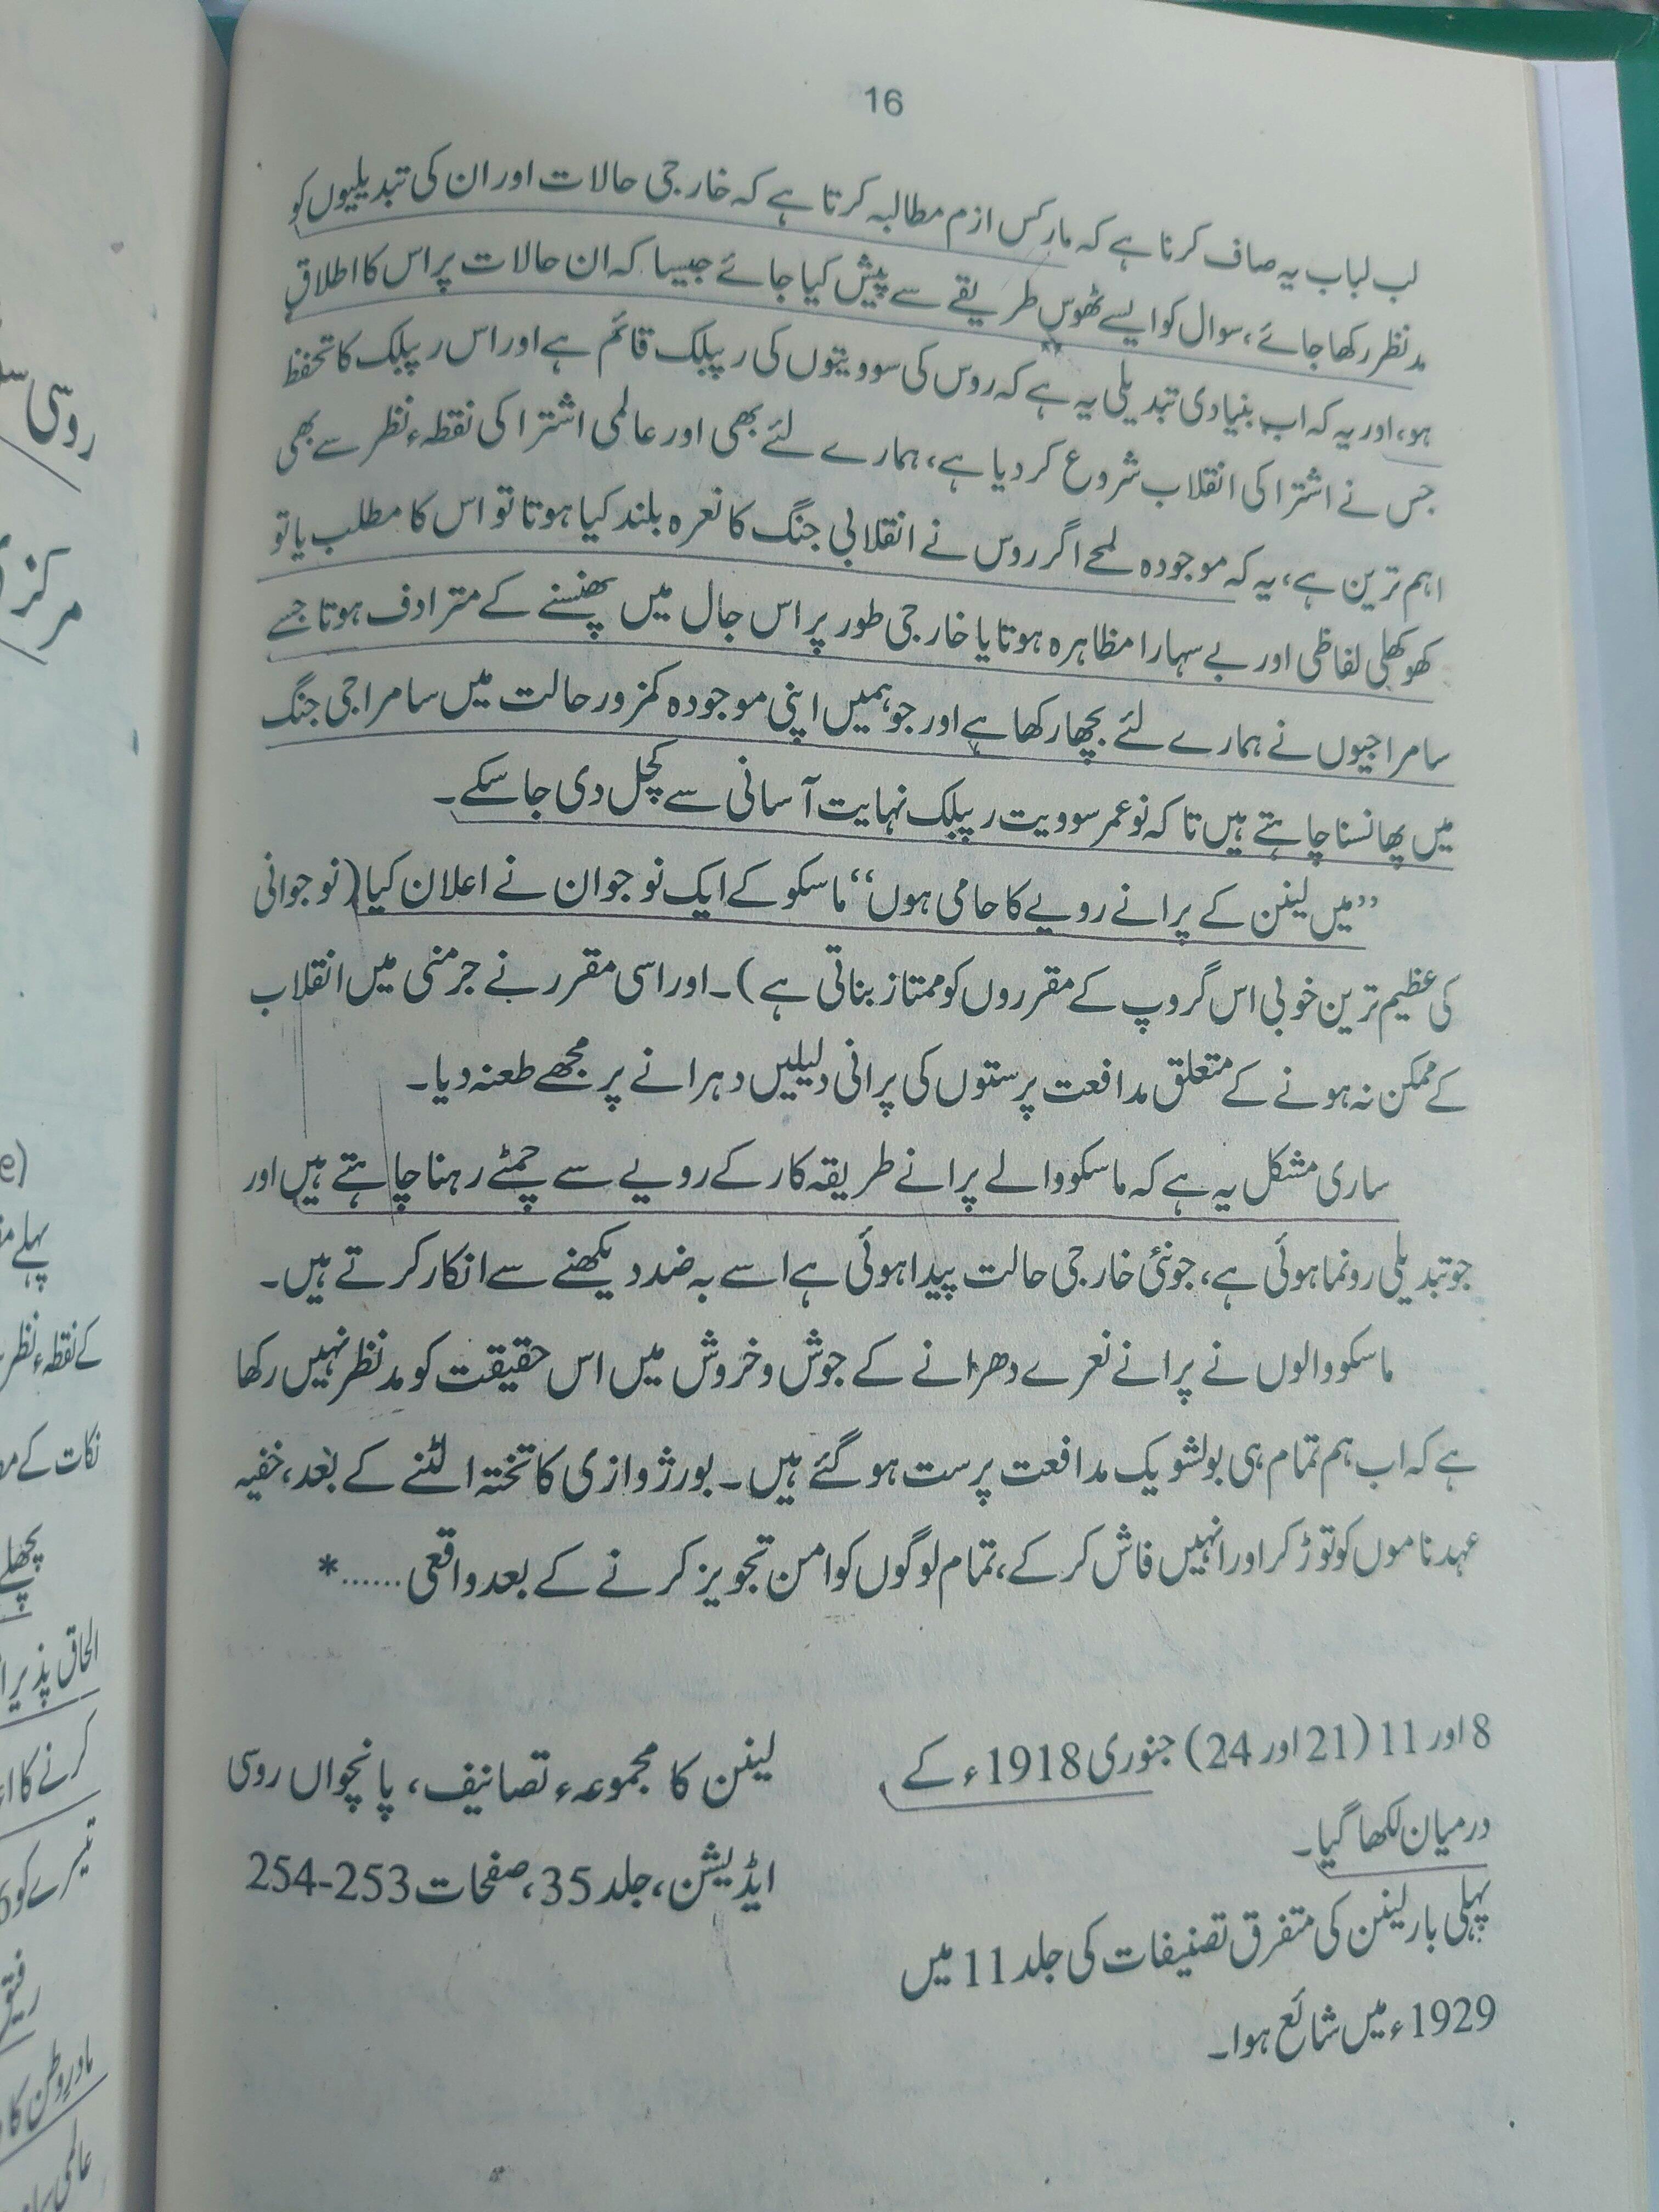 16
لب لباب یہ صاف کرنا ہے کہ مارکس ازم مطالبہ کرتا ہے کہ خارجی حالات اور ان کی تبدیلیوں کو
مدنظر رکھا جائے، سوال کو ایسے ٹھوس طریقے سے پیش کیا جائے جیسا کہ ان حالات پر اس کا اطلاق
ہو، اور یہ کہ اب بنیادی تبدیلی یہ ہے کہ روس کی سوویتوں کی ریپبلک قائم ہے اور اس ریپبلک کا تحفظ
جس نے اشتراکی انقلاب شروع کر دیا ہے، ہمارے لئے بھی اور عالمی اشتراکی نقطہء نظر سے بھی
اہم ترین ہے، یہ کہ موجودہ لمحے اگر روس نے انقلابی جنگ کا نعرہ بلند کیا ہوتا تو اس کا مطلب یا تو
کھوکھلی لفاظی اور بے سہارا مظاہرہ ہوتا یا خارجی طور پر اس جال میں پھنسنے کے مترادف ہوتا جسے
سامراجیوں نے ہمارے لئے بچھا رکھا ہے اور جو ہمیں اپنی موجودہ کمزور حالت میں سامراجی جنگ
میں پھانسنا چاہتے ہیں تاکہ نوعمر سوویت ریپبلک نہایت آسانی سے کچل دی جا سکے۔
”میں لینن کے پرانے رویے کا حامی ہوں“ ماسکو کے ایک نوجوان نے اعلان کیا (نوجوانی
کی عظیم ترین خوبی اس گروپ کے مقرروں کو ممتاز بناتی ہے)۔ اور اسی مقرر نے جرمنی میں انقلاب
کے ممکن نہ ہونے کے متعلق مدافعت پرستوں کی پرانی دلیلیں دہرانے پر مجھے طعنہ دیا۔
ساری مشکل یہ ہے کہ ماسکو والے پرانے طریقہ کار کے رویے سے چمٹے رہنا چاہتے ہیں اور
جو تبدیلی رونما ہوئی ہے، جو نئی خارجی حالت پیدا ہوئی ہے اسے بہ ضد دیکھنے سے انکار کرتے ہیں۔
ماسکو والوں نے پرانے نعرے دھرانے کے جوش و خروش میں اس حقیقت کو مدنظر نہیں رکھا
ہے کہ اب ہم تمام ہی بولشویک مدافعت پرست ہو گئے ہیں۔ بورژوازی کا تختہ الٹنے کے بعد، خفیہ
عہدناموں کو توڑ کر اور انہیں فاش کر کے، تمام لوگوں کو امن تجویز کرنے کے بعد واقعی ......*
8 اور 11 (21 اور 24) جنوری 1918ء کے
درمیان لکھا گیا۔
پہلی بار لینن کی متفرق تصنیفات کی جلد 11 میں
1929ء میں شائع ہوا۔
لینن کا مجموعہء تصانیف، پانچواں روسی
ایڈیشن، جلد 35، صفحات 253-254
روسی
مرکز
پہلے
کے نقطہء نظر
نکات کے
پچھلے
الحاق پذیر
کرنے کا
تیسرے کو
مادر وطن کا
عالمی